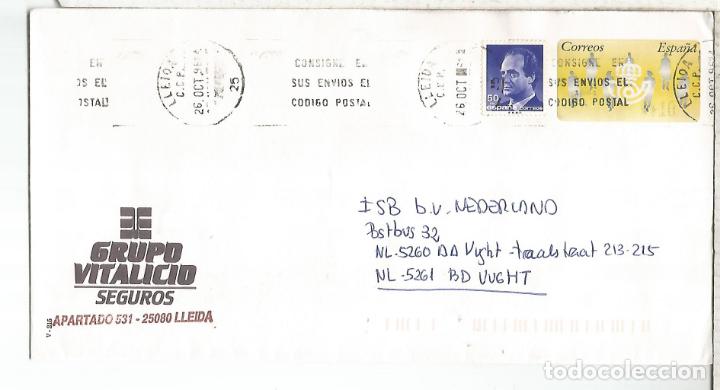 EN
SUS EL
POSTAL
LLEIDA
C.C.P.
26 OCT 96
25
CONSIGNE EN
SUS ENVIOS EL
CODIGO POSTAL
LLEIDA
C.C.P.
26 OCT
50
España
Correos
Correos España
CONSIGNE EN
SUS ENVIOS EL
CODIGO POSTAL
LLEIDA
C.C.P.
26 OCT 96
GRUPO
VITALICIO
SEGUROS
APARTADO 531 - 25080 LLEIDA
ISB b.v. NEDERLAND
Postbus 32
NL-5260 AA Vught -traalstraat 213-215
NL-5261 BD VUGHT
todocoleccion